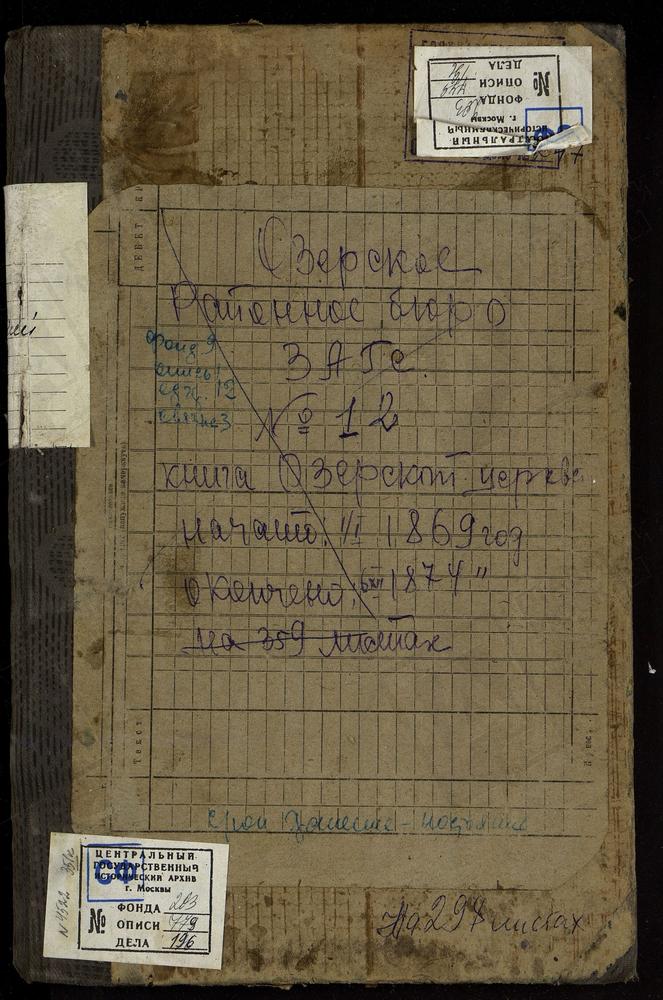 №
ДЕЛА
ОПИСИ
ФОНДА
г. Москвы
ДЕБЕТ
Озерское
Районное бюро
ЗАГс.
фонд 9
опись 1
едх. 12
связка 3
№ 12
книга Озерской церкви
начато: 1/I 1869 год
окончено: XII 1874 "
на 359 листах
Текст
Срок хранения - постоянно
ЦЕНТРАЛЬНЫЙ
ГОСУДАРСТВЕННЫЙ
ИСТОРИЧЕСКИЙ АРХИВ
г. Москвы
СФ
№
ФОНДА 203
ОПИСИ 779
ДЕЛА 196
На 297 листах